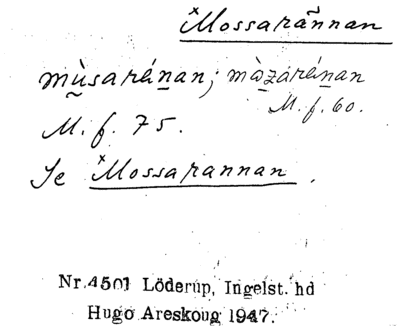 ˣMossarännan
mùsaránan; màzaránan
M. f. 60.
M. f. 75.
Se ˣMossarannan.
Nr.4501 Löderup, Ingelst. hd
Hugo Areskoug 1947.